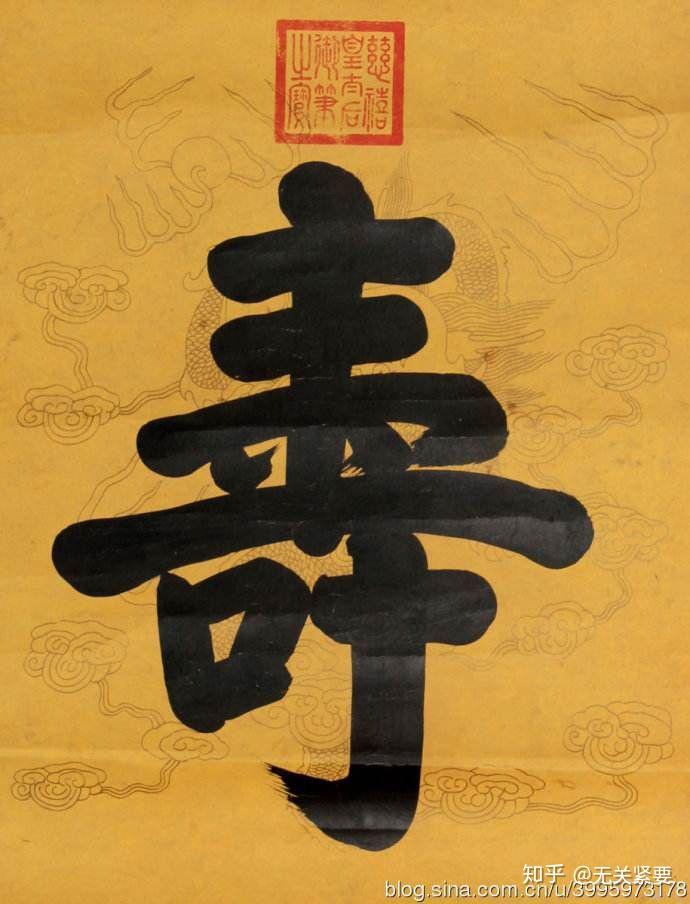 慈禧
皇太后
御筆
之寶
壽
知乎 @无关紧要
blog.sina.com.cn/u/3995973178